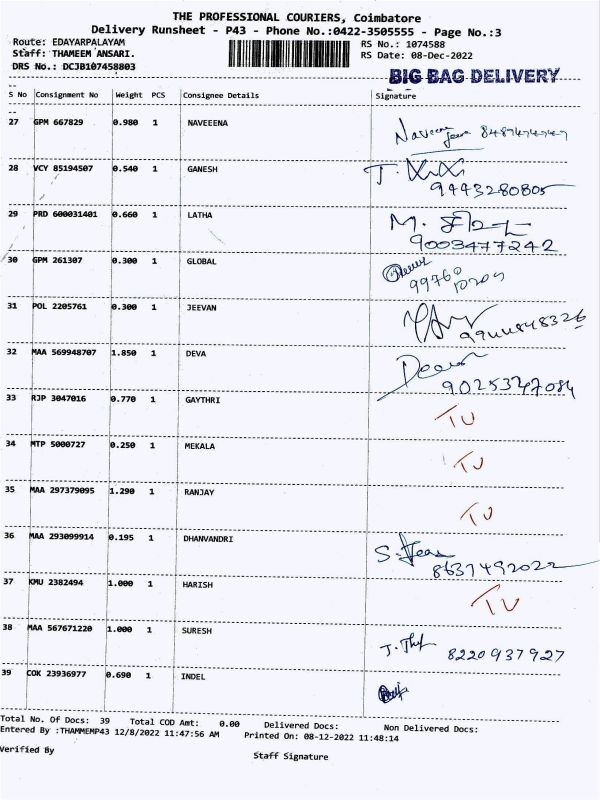 THE PROFESSIONAL COURIERS, Coimbatore
Delivery Runsheet - P43 - Phone No.:0422-3505555 - Page No.:3
Route: EDAYARPALAYAM RS No.: 1074588
Staff: THAMEEM ANSARI. RS Date: 08-Dec-2022
DRS No.: DCJB107458803
BIG BAG DELIVERY
S No Consignment No Weight PCS Consignee Details Signature
27 GPM 667829 0.980 1 NAVEEENA
28 VCY 85194507 0.540 1 GANESH
9443280805
29 PRD 600031401 0.660 1 LATHA
9003477242
30 GPM 261307 0.300 1 GLOBAL
31 POL 2205761 0.300 1 JEEVAN
32 MAA 569948707 1.850 1 DEVA
9025347084
33 RJP 3047016 0.770 1 GAYTHRI TU
34 MTP 5000727 0.250 1 MEKALA TU
35 MAA 297379095 1.290 1 RANJAY TU
36 MAA 293099914 0.195 1 DHANVANDRI
8637492022
37 KMU 2382494 1.000 1 HARISH TU
38 MAA 567671220 1.000 1 SURESH 8220937927
39 COK 23936977 0.690 1 INDEL
Total No. Of Docs: 39 Total COD Amt: 0.00 Delivered Docs: Non Delivered Docs:
Entered By :THAMMEMP43 12/8/2022 11:47:56 AM Printed On: 08-12-2022 11:48:14
Verified By Staff Signature